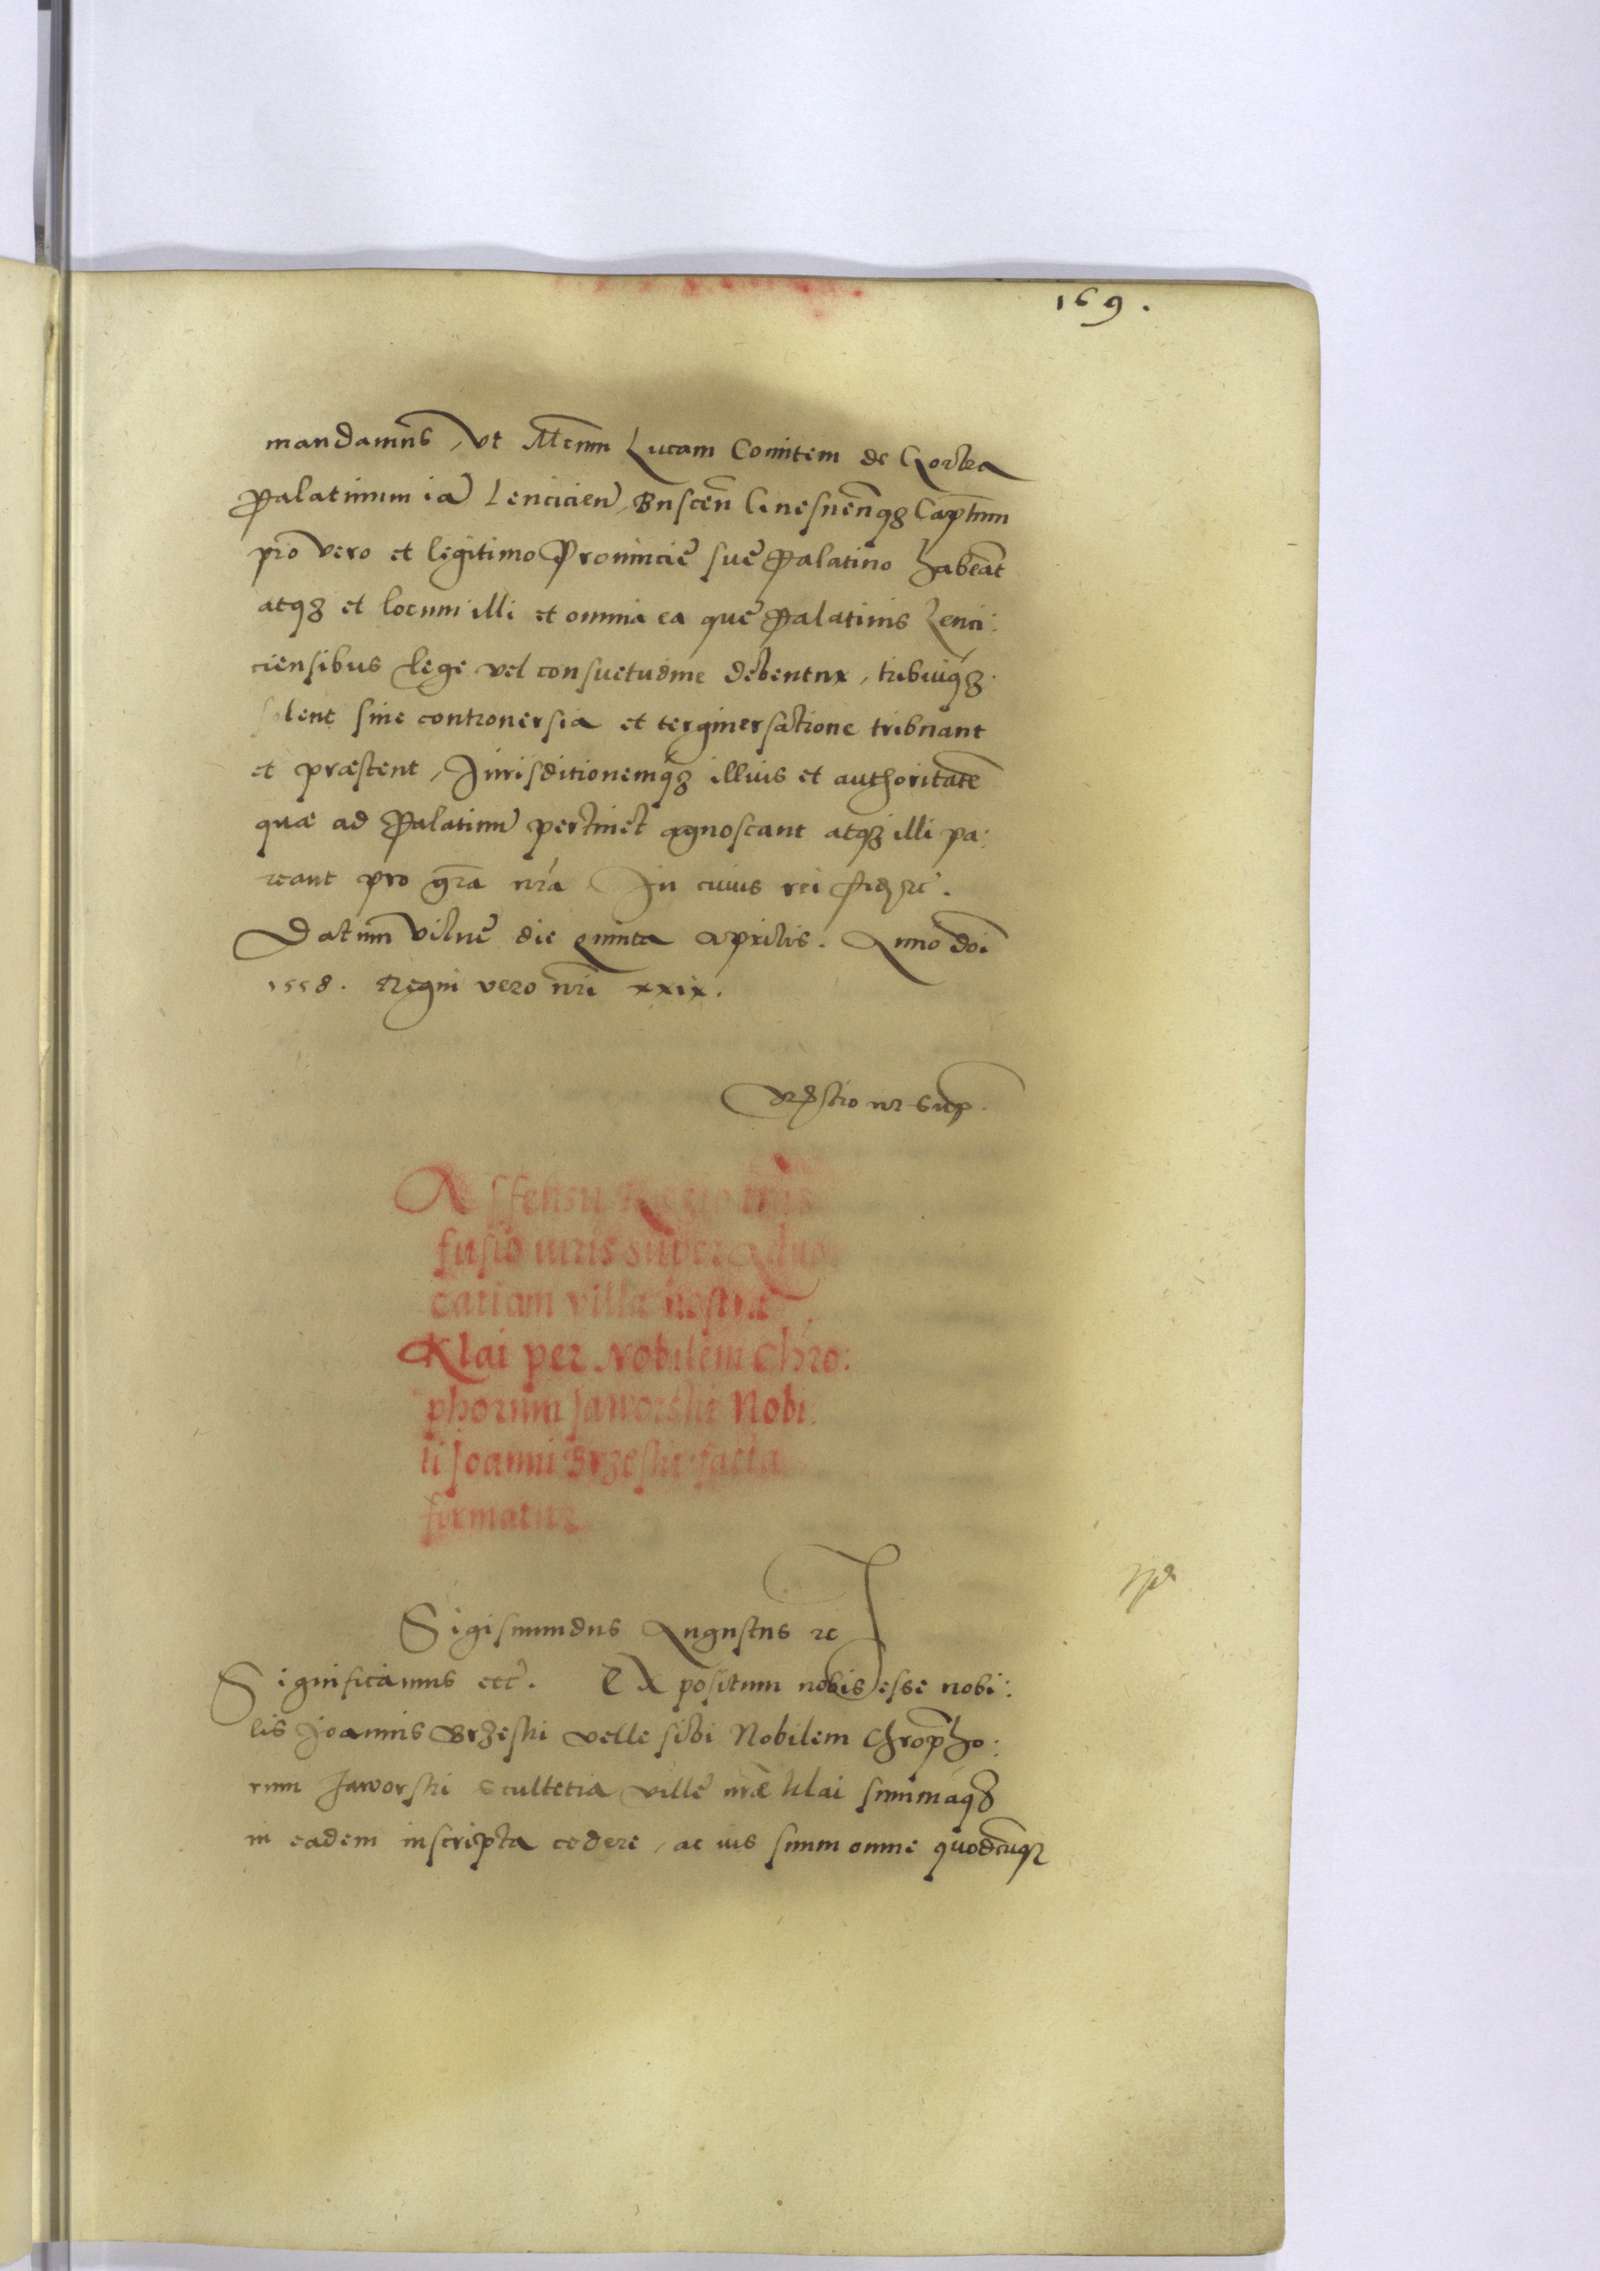 169.
mandamus, ut Mcum Lucam Comitem de Gorka
Palatinum ia Lencicien, Buscen Gnesnenqꝫ Captnum
pro vero et legitimo Provincie sue Palatino habeat
atqꝫ et locum illi et omnia ea que Palatinis Lenci:
ciensibus lege vel consuetudine debentur, tribuiqꝫ
solent sine controuersia et terginersatione tribuant
et præstent, Jurisditionemqꝫ illius et authoritate
quæ ad Palatinu pertinet agnoscant atqꝫ illi pa:
reant pro gra nra In cuius rei fidꝫ ꝛc.
Datum Vilne die quinta Aprilis. Anno doi
1558. Regni vero nri xxix.
sup.
Assensu Regio trās
fusio iuris super Aduo
catiam villæ nostræ
Klai per Nobilem Chro:
phorum Jaworski Nobi:
li Joanni Brzeski facta
firmatur
Sigismundus Augustus ꝛc
Significamus etc. Expositum nobis esse nobi:
lis Joannis Brzeski velle sibi Nobilem Chropho:
rum Jaworski Scultetia ville nræ Klai summaqꝫ
in eadem inscripta cedere, ac ius suum omne quodcuqꝫ